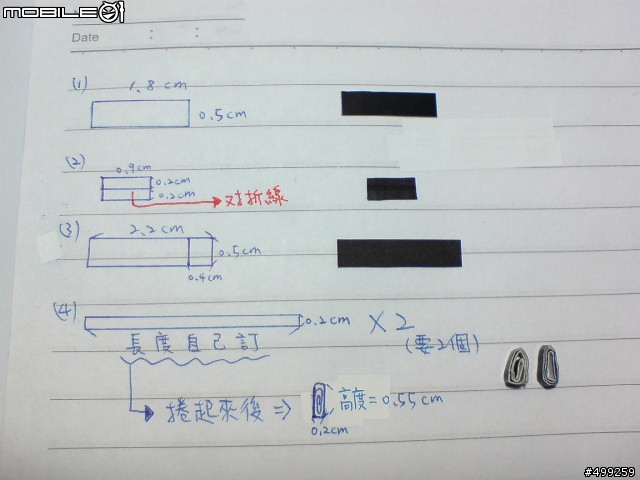 MOBILE01
Date : :
(1) 1.8 cm
0.5cm
(2) 0.9cm
0.2cm
0.2cm
対折線
(3) 2.2 cm
0.5cm
0.4cm
(4) 0.2cm × 2
長度自己訂 (要2個)
捲起來後 ⇒ 高度=0.55cm
0.2cm
#499259